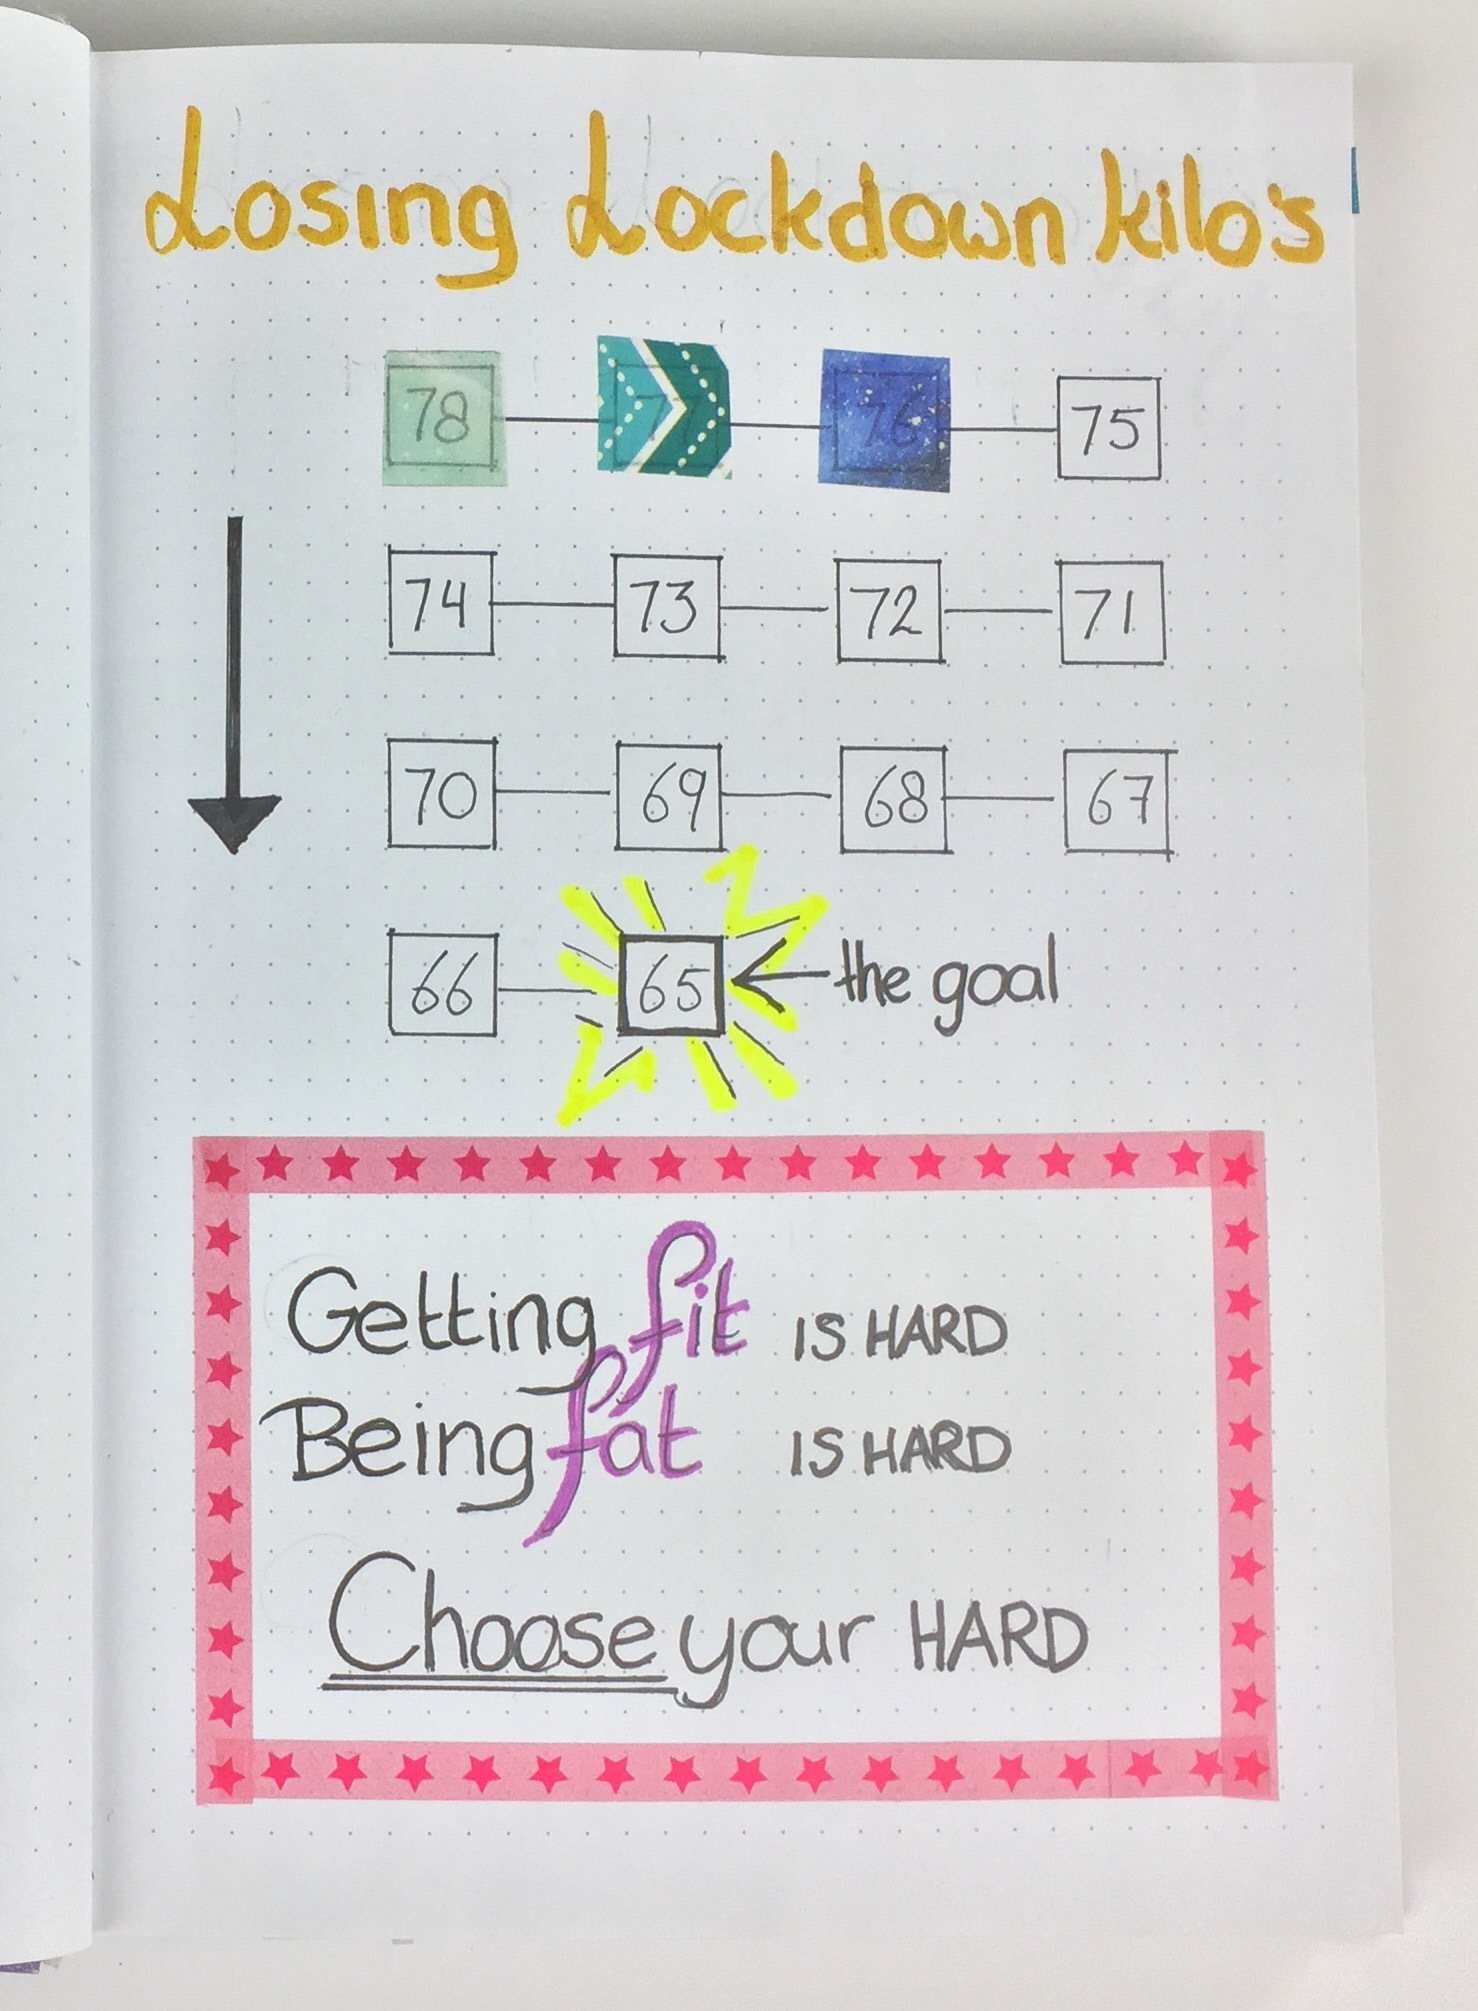 Losing Lockdown kilo's
78 77 76 75
74 73 72 71
70 69 68 67
66 65 the goal
Getting fit IS HARD
Being fat IS HARD
Choose your HARD